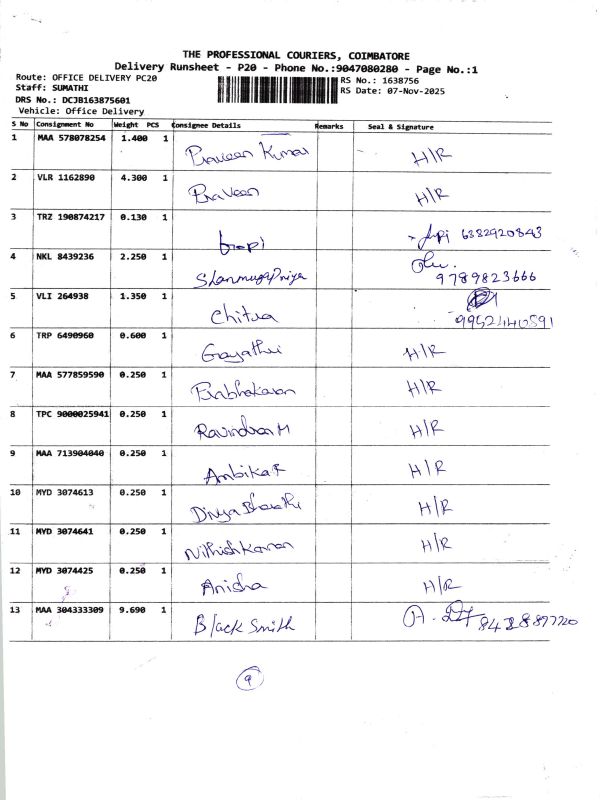 THE PROFESSIONAL COURIERS, COIMBATORE
Delivery Runsheet - P20 - Phone No.:9047080280 - Page No.:1
Route: OFFICE DELIVERY PC20
Staff: SUMATHI
DRS No.: DCJB163875601
Vehicle: Office Delivery
RS No.: 1638756
RS Date: 07-Nov-2025
S No Consignment No Weight PCS Consignee Details Remarks Seal & Signature
1 MAA 578078254 1.400 1 Praveen Kumar H/R
2 VLR 1162890 4.300 1 Praveen H/R
3 TRZ 190874217 0.130 1 Gopi 6382920843
4 NKL 8439236 2.250 1 Shanmugapriya 9789823666
5 VLI 264938 1.350 1 Chitra
6 TRP 6490960 0.600 1 Gayathri H/R
7 MAA 577859590 0.250 1 Prabhakaran H/R
8 TPC 9000025941 0.250 1 Ravindran M H/R
9 MAA 713904040 0.250 1 Ambika R H/R
10 MYD 3074613 0.250 1 Divya Bharathi H/R
11 MYD 3074641 0.250 1 Nithish Kannan H/R
12 MYD 3074425 0.250 1 Anisha H/R
13 MAA 304333309 9.690 1 Black Smith
9